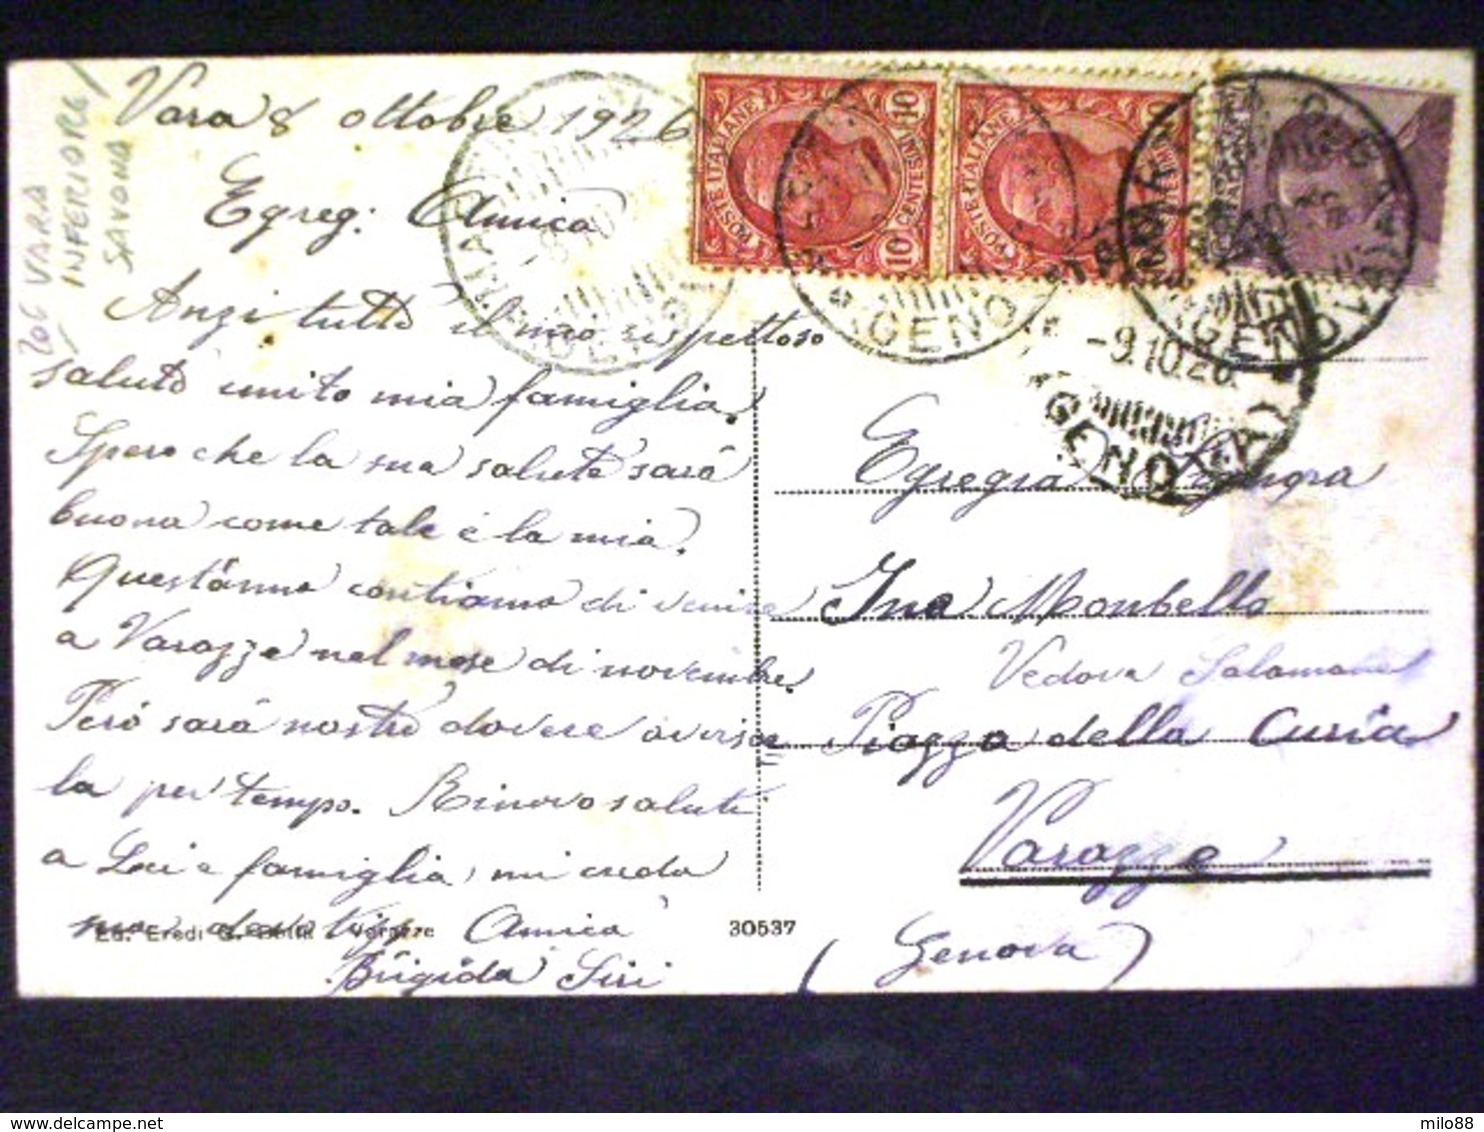 206 VARA
INFERIORE /
SAVONA
Vara 8 ottobre 1926
Egreg: Amica
Anzi tutto il mio rispettoso
saluto unito mia famiglia.
Spero che la sua salute sarà
buona come tale è la mia.
Quest'anno contiamo di venire
a Varazze nel mese di novembre.
Però sarà nostro dovere avvisar
la per tempo. Rinnovo saluti
a Lei e famiglia, mi creda
Amica
Brigida Siri
Ed. Eredi G. Botta - Varazze
30537
POSTE ITALIANE
10 CENTESIMI 10
POSTE ITALIANE
GENOVA
-8.10.26
GENOVA
GENOVA
-9.10.26
GENOVA
Egregia Signora
Ina Monbello
Vedova Salamone
Piazza della Curia
Varazze
(Genova)
milo88